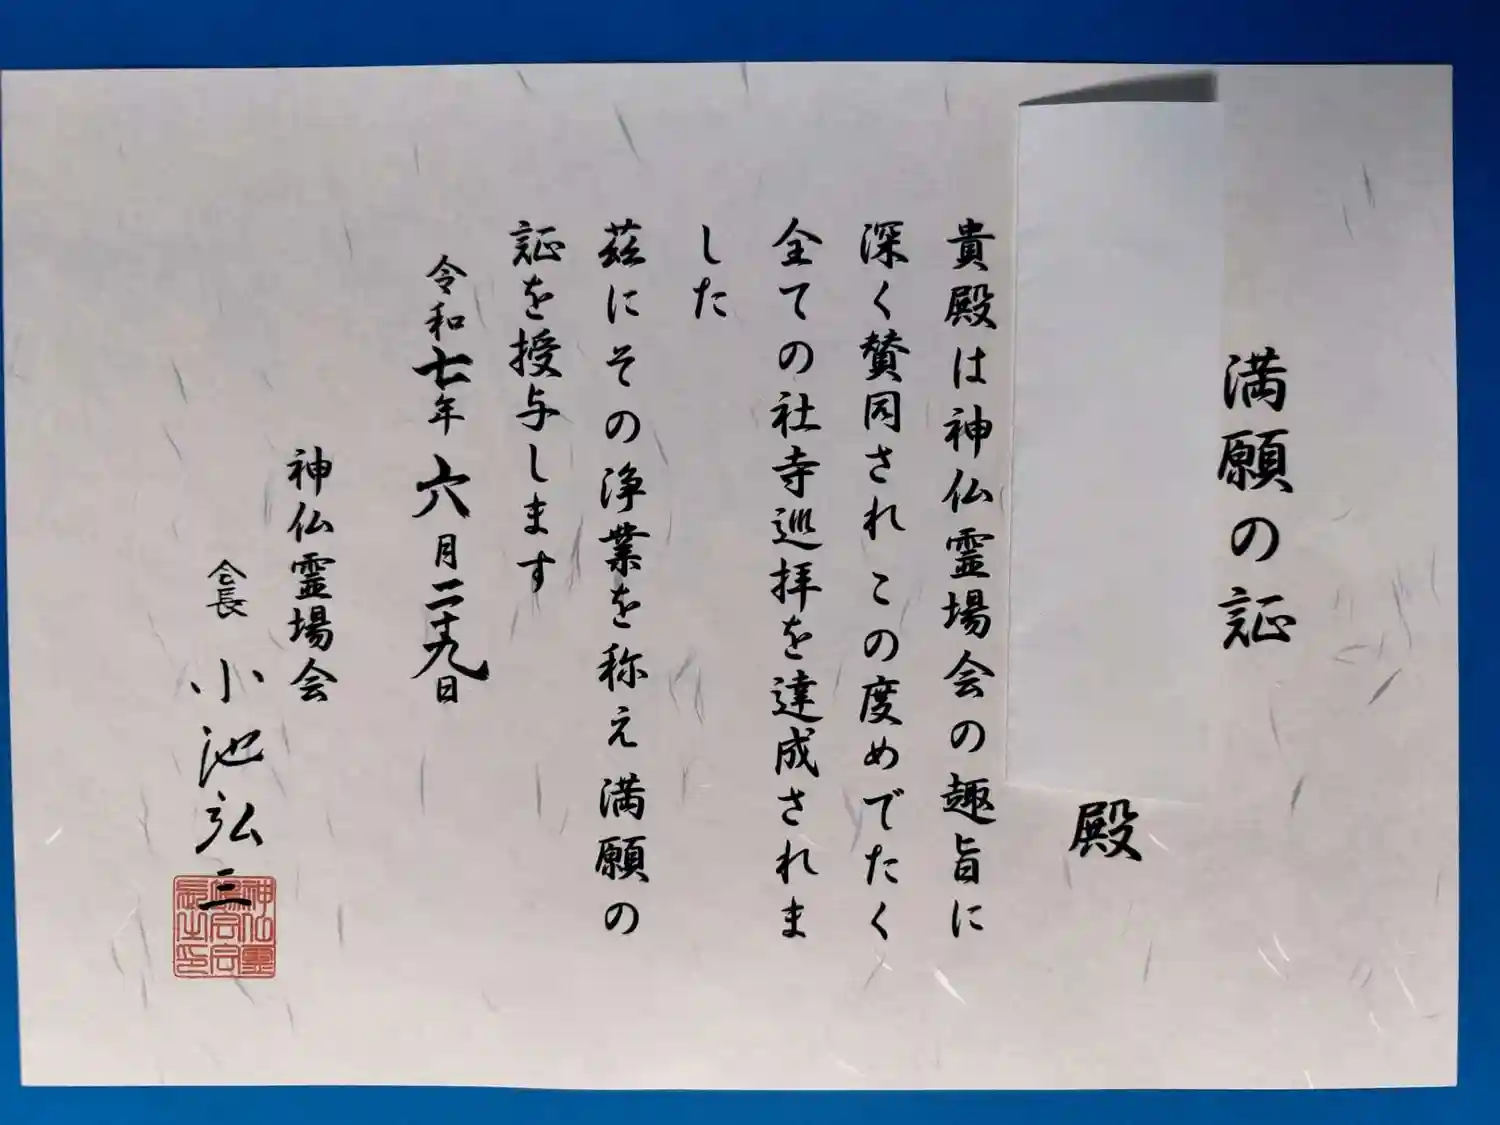 満願の証
殿
貴殿は神仏霊場会の趣旨に
深く賛同されこの度めでたく
全ての社寺巡拝を達成されま
した
茲にその浄業を称え満願の
証を授与します
令和七年六月二十九日
神仏霊場会
会長 小池弘三
神仏霊
場会会
長之印